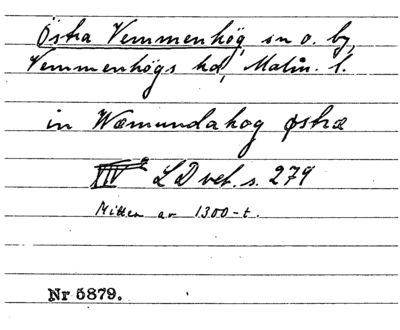 Östra Vemmenhög, sn o. by,
Vemmenhögs hd, Malm. l.
in Wæmundahog østræ
XIV L D vet. s. 279
Mitten av 1300-t.
Nr 5879.